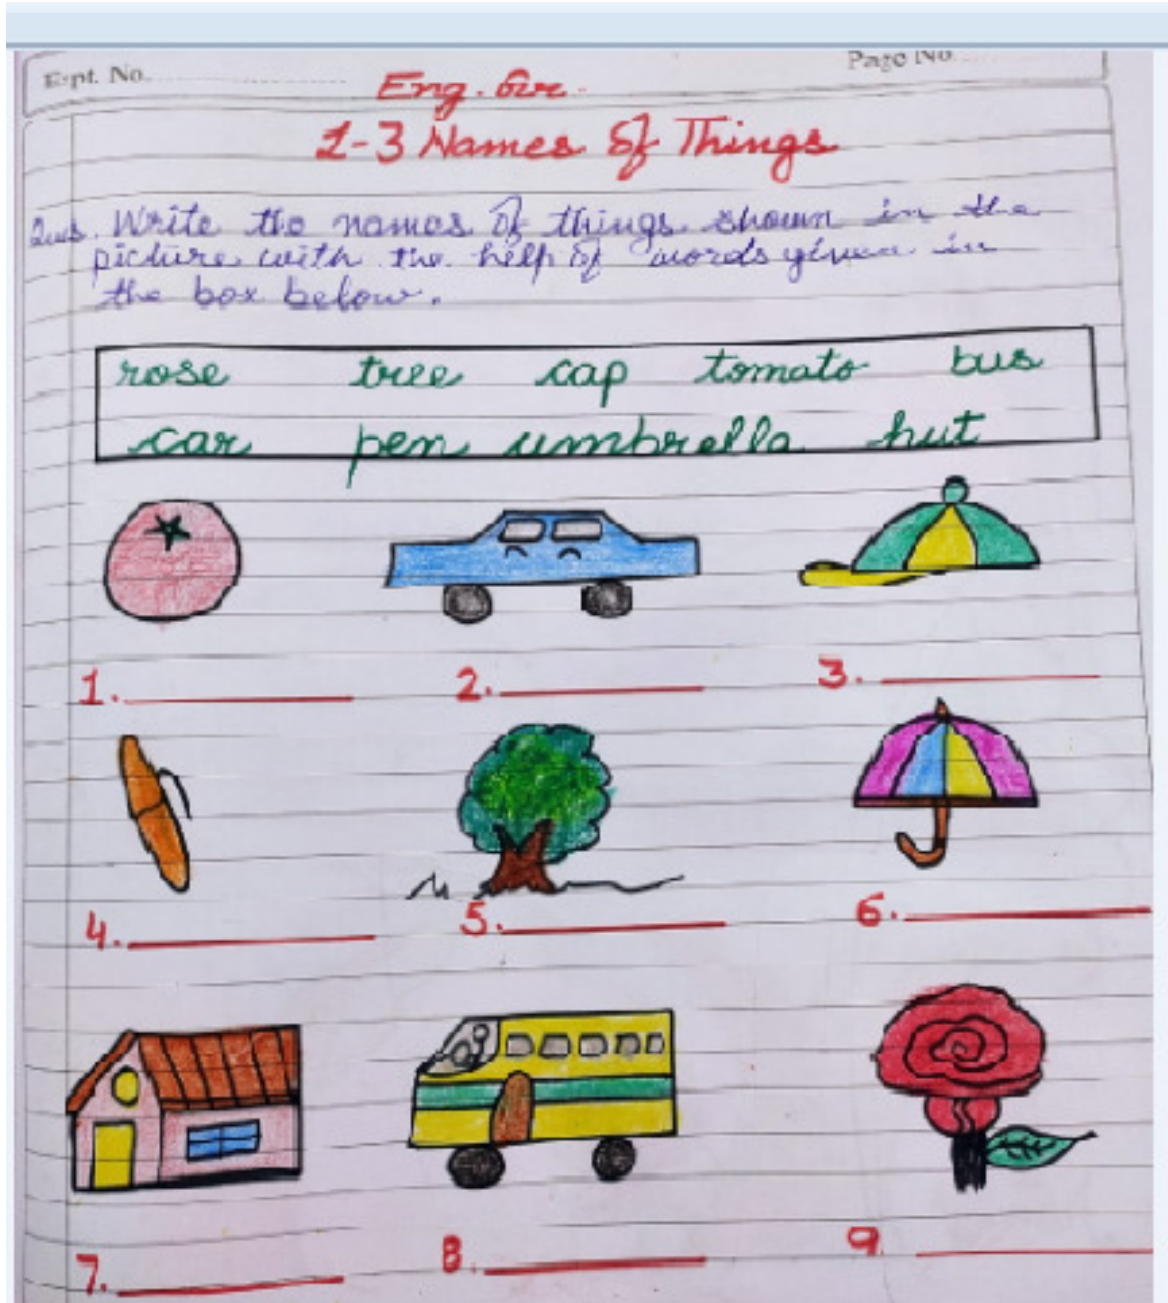 Expt. No.
Page No.
Eng. Gr.
1-3 Names of Things
Ques. Write the names of things shown in the
picture with the help of words given in
the box below.
rose tree cap tomato bus
car pen umbrella hut
1. 2. 3.
4. 5. 6.
7. 8. 9.